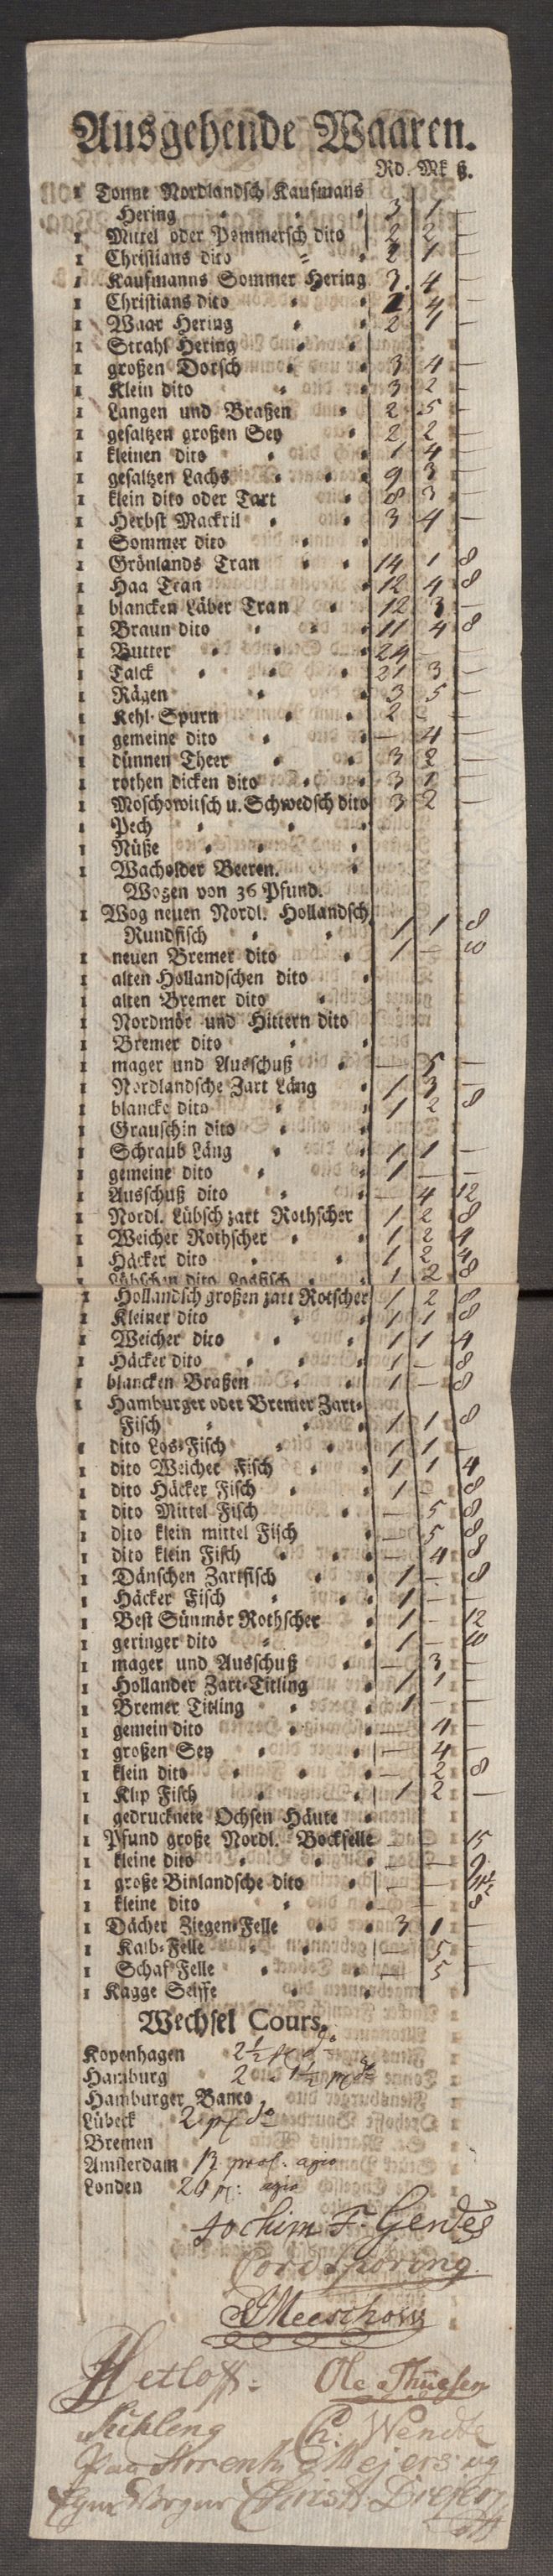 Ausgehende Waaren.
Rd. Mk ß.
1 Tonne Nordlandsch Kaufmans
Hering 3 1 —
1 Mittel oder Pommersch dito 2 2 —
1 Christians dito 2 1 —
1 Kaufmanns Sommer Hering 3 4 —
1 Christians dito 2 4 —
1 Waar Hering 2 1 —
1 Strahl Hering
1 großen Dorsch 3 4 —
1 Klein dito 3 2 —
1 Langen und Braßen 2 5 —
1 gesaltzen großen Sey 2 2 —
1 kleinen dito 1 4 —
1 gesaltzen Lachs 9 3 —
1 klein dito oder Tart 8 3 —
1 Herbst Mackril 3 4 —
1 Sommer dito
1 Grönlands Tran 14 1 8
1 Haa Tran 12 4 8
1 blancken Läber Tran 12 3 —
1 Braun dito 11 4 8
1 Butter 24 — —
1 Talck 21 3 —
1 Rägen 3 5 —
1 Kehl-Spurn 2 — —
1 gemeine dito — 4 —
1 dünnen Theer 3 2 —
1 rothen dicken dito 3 1 —
1 Moschowitsch u. Schwedsch dito 3 2 —
1 Pech
1 Nüße
1 Wacholder Beeren.
Wogen von 36 Pfund.
1 Wog neuen Nordl. Hollandsch
Rundfisch 1 1 8
1 neuen Bremer dito 1 — 10
1 alten Hollandschen dito
1 alten Bremer dito
1 Nordmör und Hittern dito
1 Bremer dito
1 mager und Ausschuß — 5 —
1 Nordlandsche Zart Läng 1 3 —
1 blancke dito 1 2 8
1 Grauschin dito
1 Schraub Läng 1 1 —
1 gemeine dito 1 — —
1 Ausschuß dito — 4 12
1 Nordl. Lübsch zart Rothscher 1 2 8
1 Weicher Rothscher 1 2 4
1 Häcker dito 1 2 4
1 Lübschen dito Losfisch 1 2 8
1 Hollandsch großen zart Rotscher 1 2 8
1 Kleiner dito 1 1 8
1 Weicher dito 1 1 4
1 Häcker dito 1 — 8
1 blancken Braßen 1 — 8
1 Hamburger oder Bremer Zart-
Fisch 1 1 8
1 dito Los-Fisch 1 1 —
1 dito Weicher Fisch 1 1 4
1 dito Häcker Fisch 1 — 8
1 dito Mittel Fisch — 5 8
1 dito klein mittel Fisch — 5 8
1 dito klein Fisch — 4 8
1 Dänschen Zartfisch 1 — 8
1 Häcker Fisch 1 — —
1 Best Sünmör Rothscher 1 — 12
1 geringer dito 1 — 10
1 mager und Ausschuß — 3 —
1 Hollander Zart-Titling 1 1 —
1 Bremer Titling 1 — —
1 gemein dito — 4 —
1 großen Sey — 4 —
1 klein dito — 2 8
1 Klip Fisch 1 2 —
1 gedrucknete Ochsen Häute
1 Pfund große Nordl. Bockfelle — — 15
1 kleine dito — — 9
1 große Binlandsche dito — —
1 kleine dito — — 8
1 Dächer Ziegen-Felle 3 1 —
1 Kalb-Felle — 5 —
1 Schaf Felle — 5 —
1 Kagge Seiffe
Wechsel Cours.
Kopenhagen 2½ pC do
Hamburg 2 - 1½ pC do
Hamburger Banco
Lübeck 2 pC do
Bremen
Amsterdam 12 proC. agio
Londen 20 pC: agio
Jochim F. Gerdes
Cord Sporing
Meeschow
Ole Thuesen
Ch. Wendte
Meyers